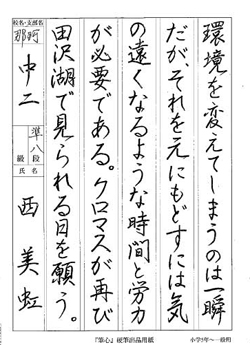 環境を変えてしまうのは一瞬
だが、それを元にもどすには気
の遠くなるような時間と労力
が必要である。クロマスが再び
田沢湖で見られる日を願う。
校名・支部名
那珂
中二
準八段
級
氏名
西美虹
『筆心』硬筆出品用紙
小学3年～一般用